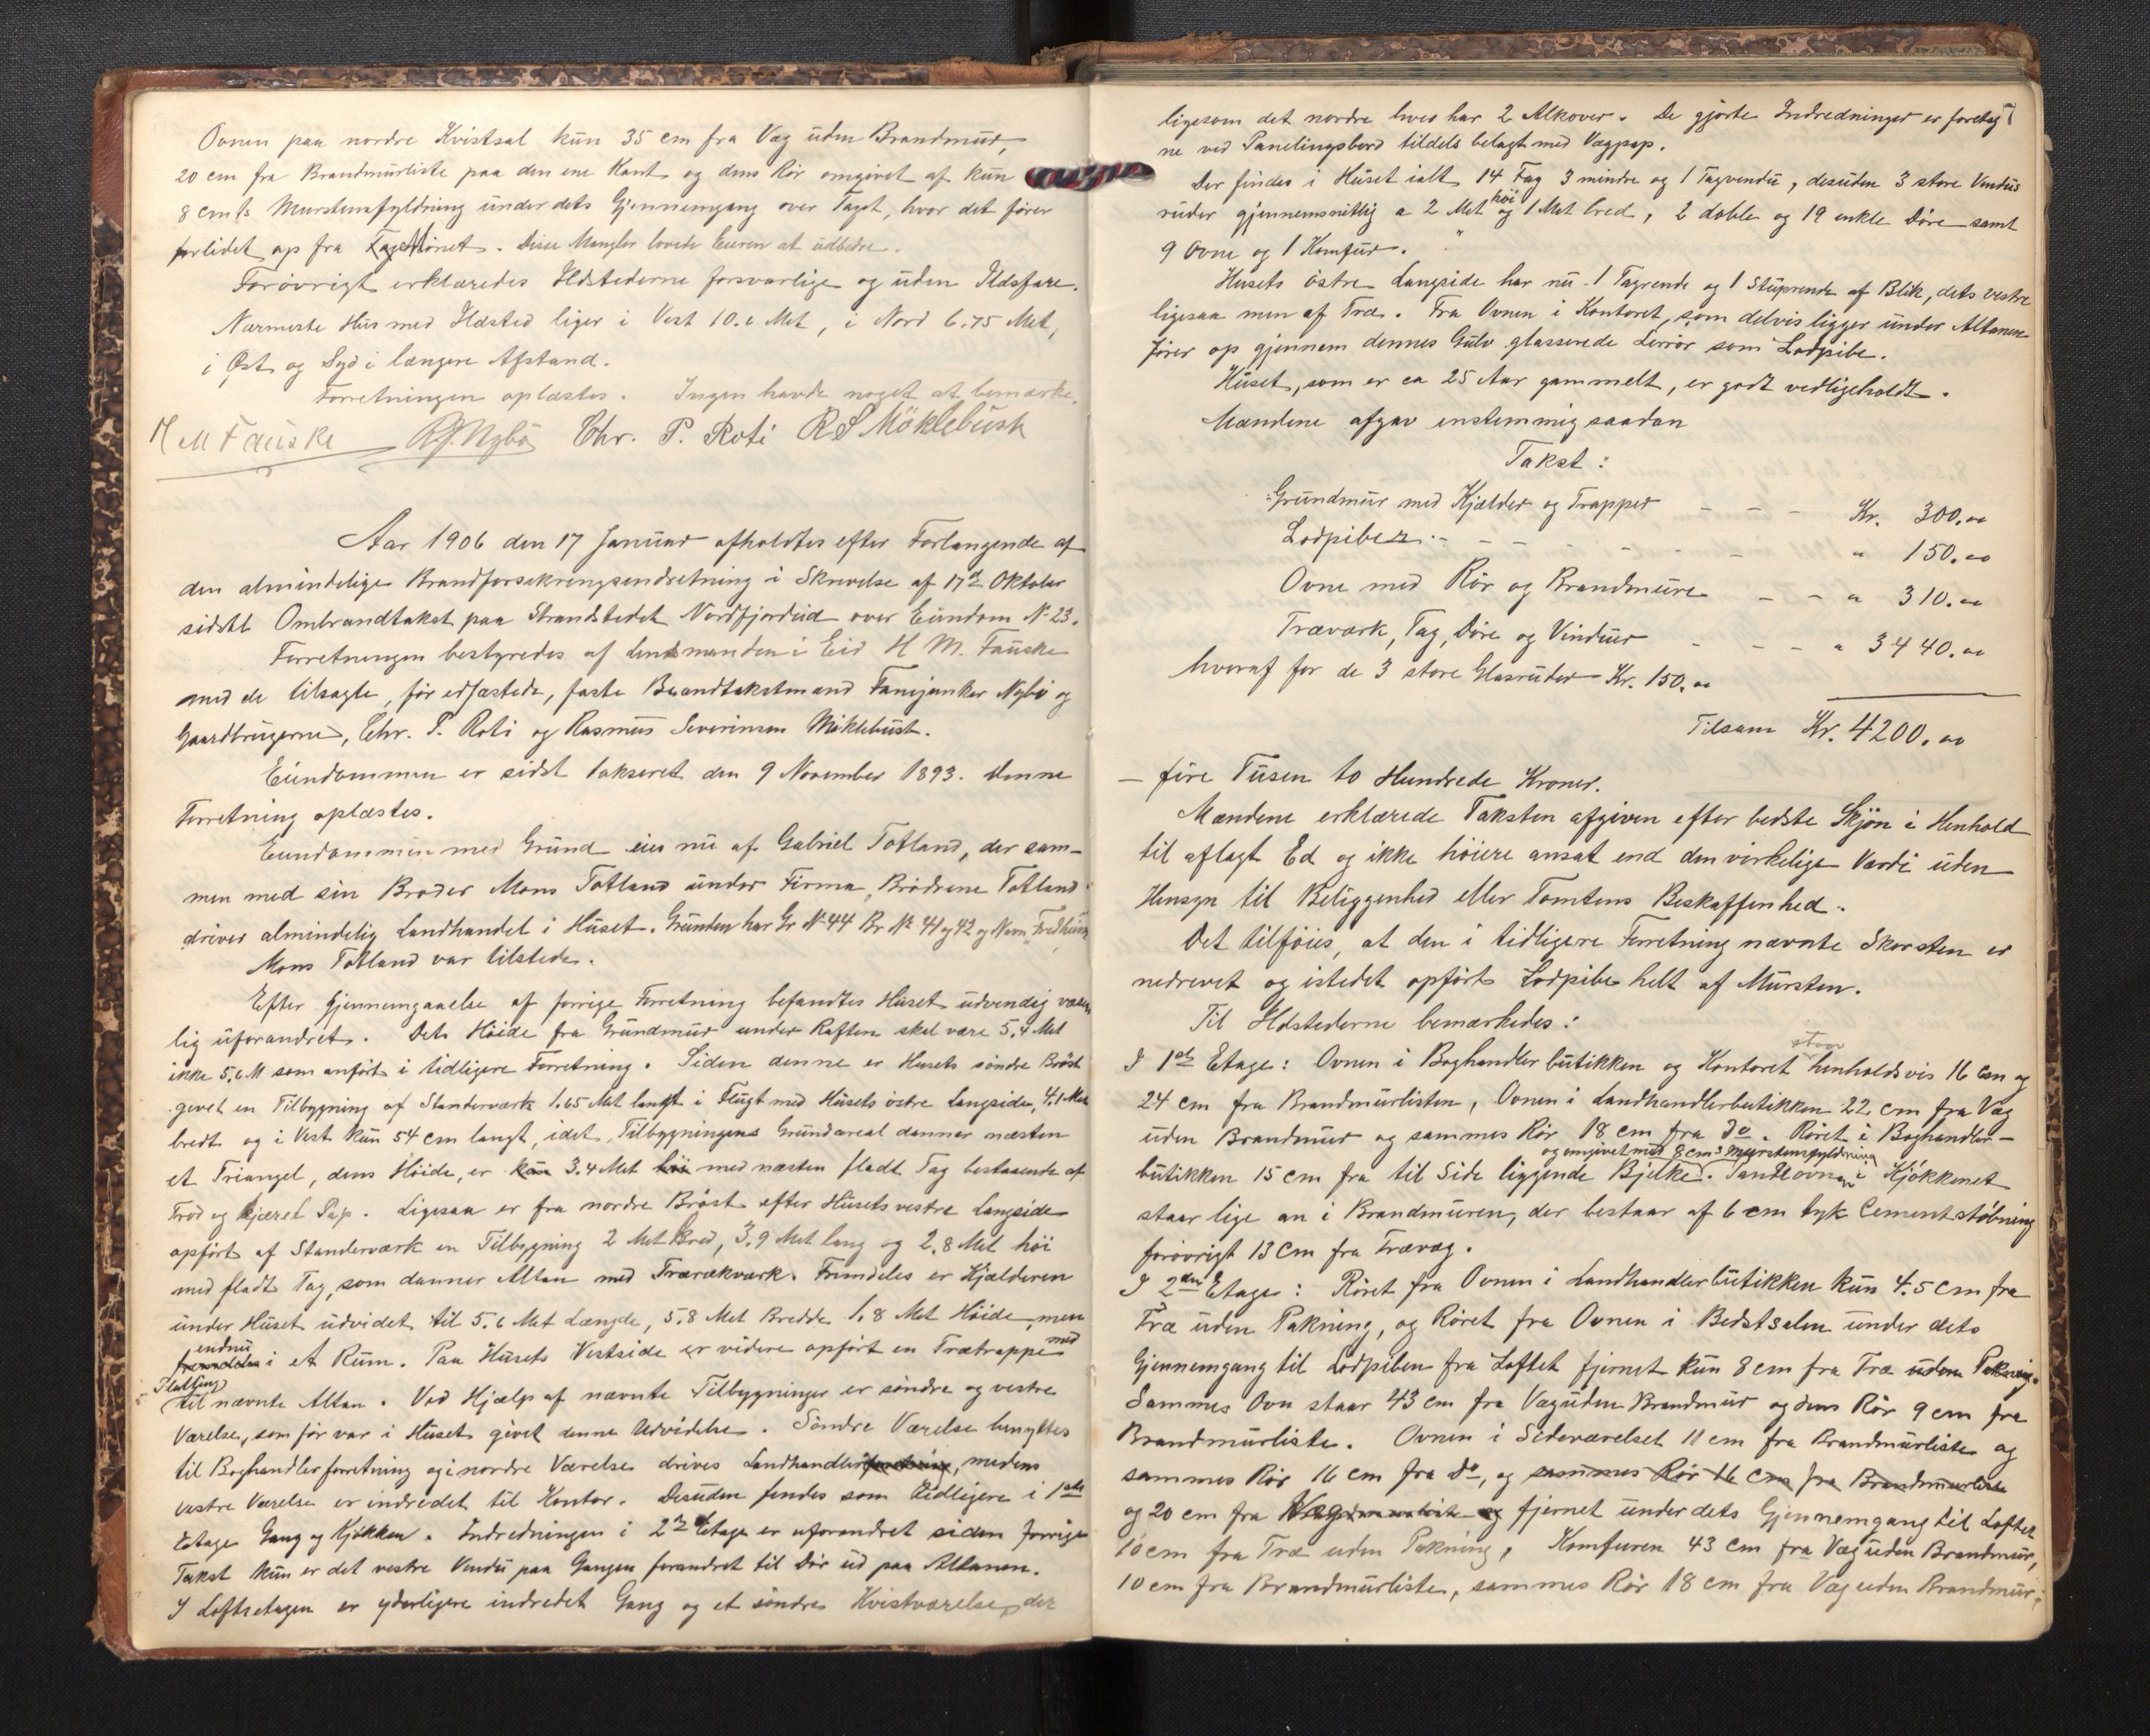 Ovnen paa nordre Kvistsal kun 35 cm fra Væg uden Brandmur,
20 cm fra Brandmurliste paa den ene Kant og dens Rör omgivet af kun
8 cm's Murstensfyldning under dets Gjennemgang over Taget, hvor det fører
forlidet op fra Mönet. Disse Mangler lovede Eieren at udbedre.
Forøvrigt erklæredes Ildstederne forsvarlige og uden Ildsfare.
Nærmeste Hus med Ildsted liger i Vest 10.6 Met, i Nord 6.75 Met,
i Øst og Syd i længere Afstand.
Forretningen oplæstes. Ingen havde noget at bemærke.
H M Fauske R J. Nybö Chr. P. Roti R S Möklebust
Aar 1906 den 17 Januar afholdtes efter Forlangende af
den almindelige Brandforsikringsindretning i Skrivelse af 17de Oktober
sidstl Ombrandtakst paa Strandstedet Nordfjordeid over Eiendom No 23.
Forretningen bestyredes af Lensmanden i Eid H M. Fauske
med de tilsagte, før edfæstede, faste Brandtakstmænd Fanejunker Nybö og
Gaardbrugerne, Chr. P. Roti og Rasmus Severinsen Möklebust.
Eiendommen er sidst takseret den 9 November 1893. Denne
Forretning oplæstes.
Eiendommen med Grund eies nu af Gabriel Totland, der sam-
men med sin Broder Mons Totland under Firma, Brödrene Totland
driver almindelig Landhandel i Huset. Grunden har Gr No 44 Br No 41 og 42 og Navn Fredheim
Mons Totland var tilstede.
Efter Gjennemgaaelse af forrige Forretning befandtes Huset udvendig væsen
lig uforandret. Dets Høide fra Grundmur under Raften skal være 5.4 Met
ikke 5.6 M som anført i tidligere Forretning. Siden denne er Husets söndre Bröst
givet en Tilbygning af Standerværk 1.65 Met langt i Flugt med Husets östre Langside, 4.1 Met
bredt og i Vest kun 54 cm langt, idet Tilbygningens Grundareal danner næsten
et Triangel, dens Höide, er kun 3.4 Met höi med næsten fladt Tag bestaaende af
Trod og tjæret Pap. Ligesaa er fra nordre Bröst efter Husets vestre Langside
opført af Standerværk en Tilbygning 2 Met bred, 3.9 Met lang og 2.8 Met höi
med fladt Tag, som danner Altan med Trærækværk. Fremdeles er Kjælderen
under Huset udvidet til 5.6 Met Længde, 5.8 Met Bredde 1.8 Met Höide, men
endnu
fremdeles i et Rum. Paa Husets Vestside er videre opført en Trætrappe med
Platting
til nævnte Altan. Ved Hjælp af nævnte Tilbygninger er söndre og vestre
Værelse, som før var i Huset givet denne Udvidelse. Söndre Værelse benyttes
til Boghandlerforretning og i nordre Værelse drives Landhandlerforretning, medens
vestre Værelse er indredet til Kontor. Desuden findes som tidligere i 1ste
Etage Gang og Kjøkken. Indredningen i 2den Etage er uforandret siden forrige
Takst kun er det vestre Vindu paa Gangen forandret til Dör ud paa Altanen.
I Loftsetagen er yderligere indredet Gang og et söndre Kvistværelse, der
7
ligesom det nordre hver har 2 Alkover. De gjorte Indredninger er foretag
ne ved Panelingsbord tildels belagt med Vægpap.
Der findes i Huset ialt 14 Fag 3 mindre og 1 Tagvindu, desuden 3 store Vindus
ruder gjennemsnitlig a 2 Met höi og 1 Met bred, 2 doble og 19 enkle Döre samt
9 Ovne og 1 Komfur.
Husets östre Langside har nu 1 Tagrende og 1 Stuprende af Blik, dets vestre
ligesaa men af Træ. Fra Ovnen i Kontoret, som delvis ligger under Altanen
fører op gjennem dennes Gulv glasserede Lerrör som Lodpibe.
Huset, som er ca 25 Aar gammelt, er godt vedligeholdt.
Mændene afgav enstemmig saadan
Takst:
Grundmur med Kjælder og Trapper - - - Kr. 300.00
Lodpiber - - - - - " 150.00
Ovne med Rör og Brandmure - - " 310.00
Træværk, Tag, Döre og Vinduer - - - " 3440.00
hvoraf for de 3 store Glasruder Kr. 150.00
Tilsam Kr. 4200.00
- fire Tusen to Hundrede Kroner.
Mændene erklærede Taksten afgiven efter bedste Skjön i Henhold
til aflagt Ed og ikke höiere ansat end den virkelige Værdi uden
Hensyn til Beliggenhed eller Tomtens Beskaffenhed.
Det tilföies, at den i tidligere Forretning nævnte Skorsten er
nedrevet og istedet opført Lodpibe helt af Mursten.
Til Ildstederne bemærkedes:
staar
I 1ste Etage: Ovnen i Boghandlerbutikken og Kontoret henholdsvis 16 cm og
24 cm fra Brandmurlisten, Ovnen i Landhandlerbutikken 22 cm fra Væg
uden Brandmur og sammes Rör 18 cm fra do. Röret i Boghandler-
og omgivet med 8 cm's Murstensfyldning
butikken 15 cm fra til Side liggende Bjelke. i Kjøkkenet
staar lige an i Brandmuren, der bestaar af 6 cm tyk Cementstöbning
forøvrigt 13 cm fra Trævæg.
I 2den Etage: Röret fra Ovnen i Landhandlerbutikken kun 4.5 cm fra
Træ uden Pakning, og Röret fra Ovnen i Bedstsalen under dets
Gjennemgang til Lodpiben fra Loftet fjernet kun 8 cm fra Træ uden Pakning.
Sammes Ovn staar 43 cm fra Væg uden Brandmur og dens Rör 9 cm fra
Brandmurliste. Ovnen i Sideværelset 11 cm fra Brandmurliste og
sammes Rör 16 cm fra do, og sammes Rör 16 cm fra Brandmurliste
og 20 cm fra Væg og fjernet under dets Gjennemgang til Loftet
10 cm fra Træ uden Pakning, Komfuren 43 cm fra Væg uden Brandmur,
10 cm fra Brandmurliste, sammes Rör 18 cm fra Væg uden Brandmur;